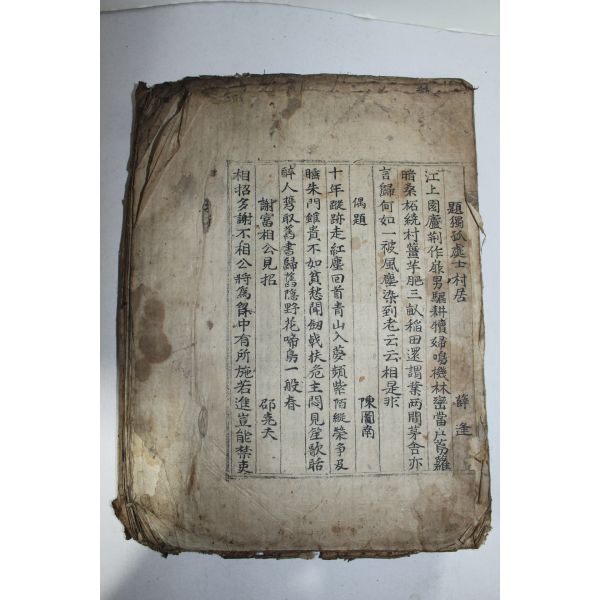 題獨孤處士村居 薛逢
江上園廬荆作扉男驅耕犢婦鳴機林巒當戶蔦蘿
暗桑柘繞村薑芋肥三畝稻田還謂業兩間茅舍亦
言歸何如一被風塵染到老云云相是非
偶題 陳圖南
十年蹤跡走紅塵回首青山入夢頻紫陌縱榮爭及
睡朱門雖貴不如貧愁聞劒戟扶危主悶見笙歌聒
醉人携取舊書歸舊隱野花啼鳥一般春
謝富相公見招 邵堯夫
相招多謝不相公將爲能中有所施若進豈能禁吏